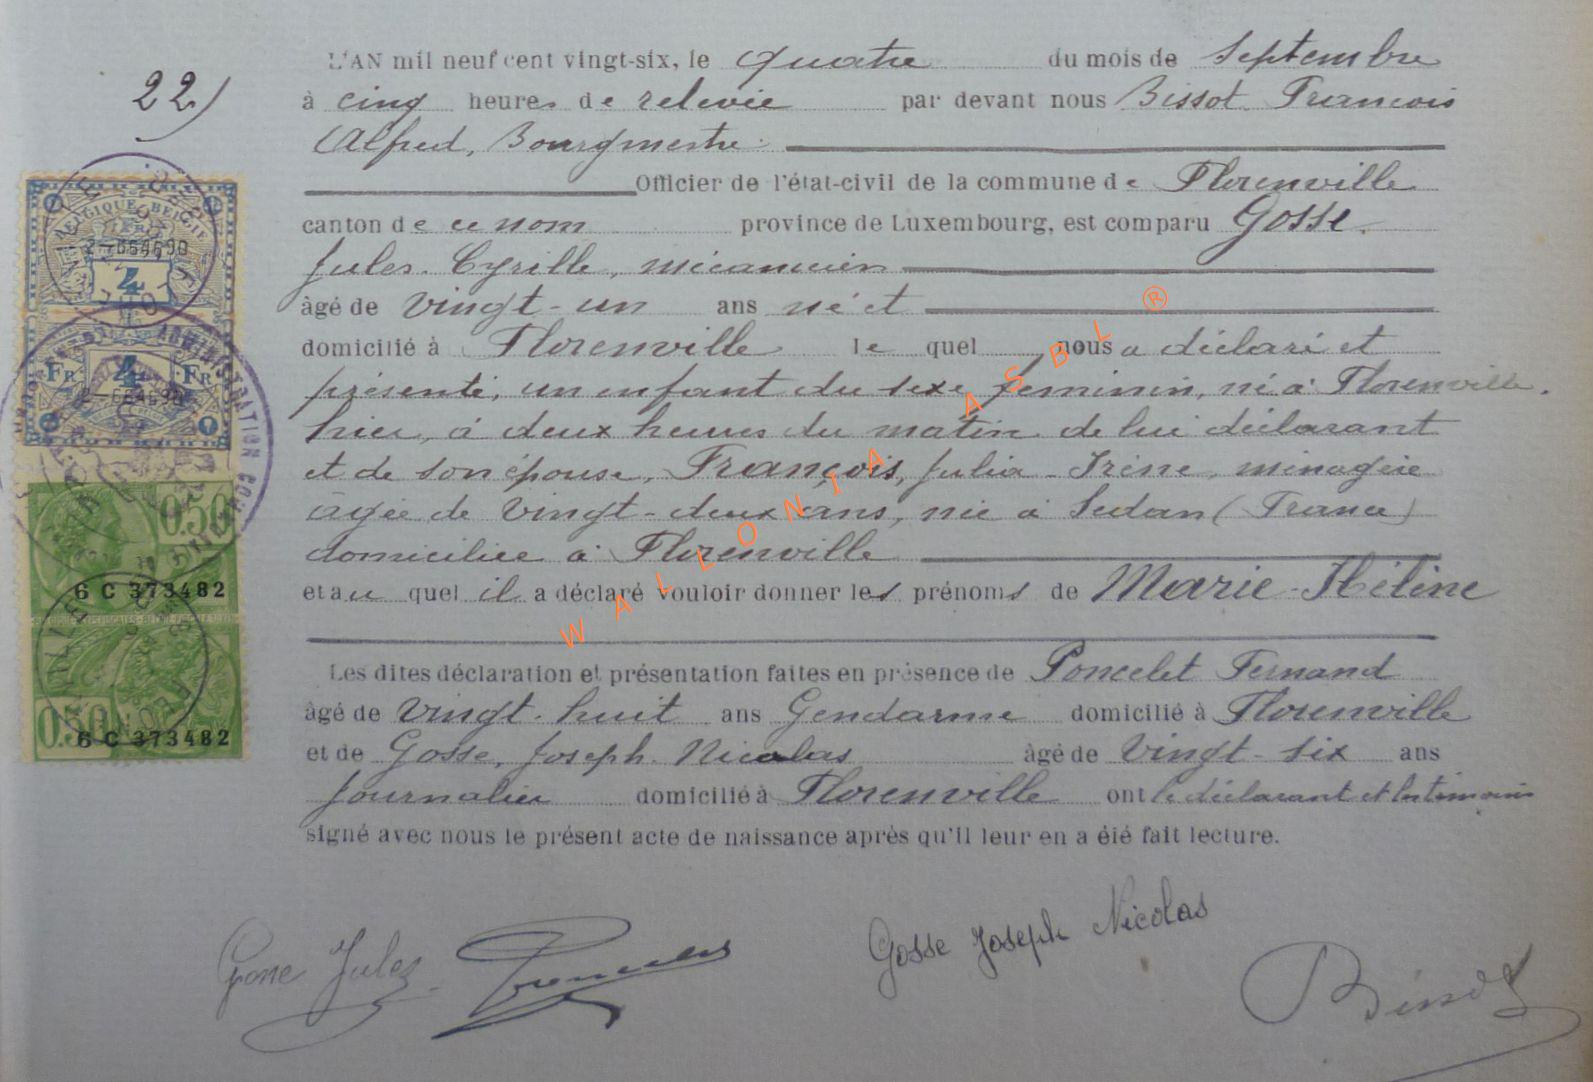 22)
L'AN mil neuf cent vingt-six, le quatre du mois de Septembre
à cinq heures de relevée par devant nous Bissot François
Alfred, Bourgmestre
Officier de l'état-civil de la commune de Florenville
canton de ce nom province de Luxembourg, est comparu Gosse
Jules Cyrille, mécanicien
âgé de vingt-un ans né et
domicilié à Florenville lequel nous a déclaré et
présenté, un enfant du sexe féminin, né à Florenville,
hier, à deux heures du matin de lui déclarant
et de son épouse, François, Julia-Irène, ménagère
âgée de vingt-deux ans, née à Sedan (France)
domiciliée à Florenville
et auquel il a déclaré vouloir donner les prénoms de Marie-Hélène
Les dites déclaration et présentation faites en présence de Poncelet Fernand
âgé de vingt-huit ans Gendarme domicilié à Florenville
et de Gosse, Joseph Nicolas âgé de vingt-six ans
journalier domicilié à Florenville ont le déclarant et les témoins
signé avec nous le présent acte de naissance après qu'il leur en a été fait lecture.
Gosse Jules
Gosse Joseph Nicolas
Bissot
BELGIQUE-BELGIE
FR
4
FR 4 FR
ADMINISTRATION
0.50
6 C 373482
0.50
6 C 373482
WALLONIA ASBL ®